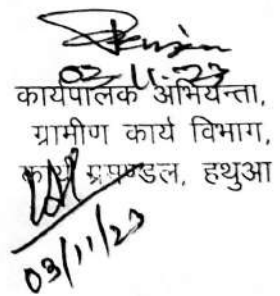 02-11-23
कार्यपालक अभियन्ता,
ग्रामीण कार्य विभाग,
कार्य प्रमण्डल, हथुआ
03/11/23